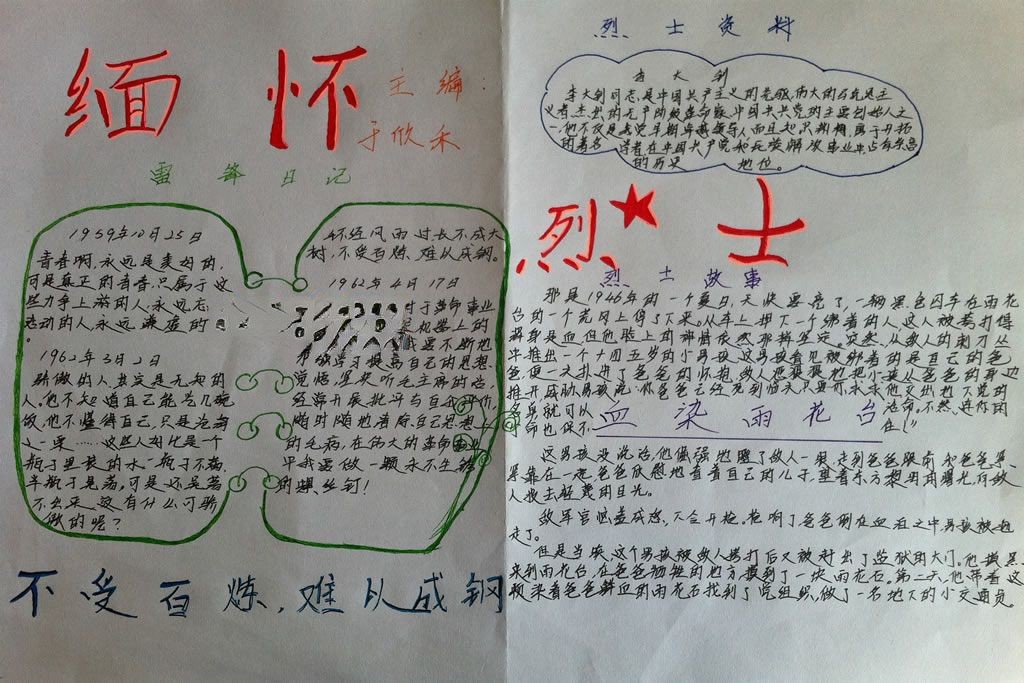 缅怀
主编：
于欣禾
雷锋日记
1959年10月25日
青春啊,永远是美好的,
可是真正的青春,只属于这
些力争上游的人,永远忘
忘劳动的人,永远谦虚的
。
1962年3月2日
骄傲的人,其实是无知的
人。他不知道自己能吃几碗
饭,他不懂得自己,只是沧海
之一粟……这些人好比是一个
瓶子里装的水一瓶子不满,
半瓶子晃荡。可是还是满
不出来,这有什么可骄
傲的呢？
不经风雨过,长不成大
树,不受百炼,难以成钢。
1962年4月17日
对于革命事业
机器上的
我要不断地
学习提高自己的思想
觉悟,坚决听毛主席的话,
经常开展批评与自我评价,
随时随地清除自己思想上
的毛病,在伟大的革命事业
中我要做一颗永不生锈
的螺丝钉!
不受百炼,难以成钢
烈士资料
李大钊
李大钊同志,是中国共产主义的先驱,伟大的马克思主
义者,杰出的无产阶级革命家,中国共产党的主要创始人之
一,他不仅是我党早期卓越领导人而且是知识渊博,勇于开拓
的著名学者在中国共产党和民族解放事业中占有崇高
的历史地位。
烈士
烈士故事
那是1946年的一个夏日,天快要亮了,一辆黑色囚车在雨花
台的一个荒岗上停了下来。从车上押下一个绑着的人,这人被打得
浑身是血,但他脸上的神情依然那样坚定。突然,从敌人的刺刀丛
中推出一个十四五岁的小男孩,这男孩看见被绑着的是自己的爸
爸,便一头扑进了爸爸的怀抱,敌人恶狠狠地把小孩从爸爸的身边
推开,威胁男孩说:你爸爸已经死到临头只要你求求他交出地下党的
名单就可以 活命。不然,连你的
命也保不 住！"
血染雨花台
这男孩没说话,他倔强地瞪了敌人一眼,走到爸爸跟前和爸爸紧
紧靠在一起,爸爸欣慰地看着自己的儿子,望着东方黎明的曙光,向敌
人投去蔑视的目光。
敌军官恼羞成怒,下令开枪,枪响了爸爸倒在血泊之中男孩被赶
走了。
但是当晚,这个男孩被敌人毒打后又被赶出了监狱的大门。他摸黑
来到雨花台,在爸爸牺牲的地方摸到了一块雨花石。第二天,他带着这
颗染着爸爸鲜血的雨花石找到了党组织,做了一名地下的小交通员。